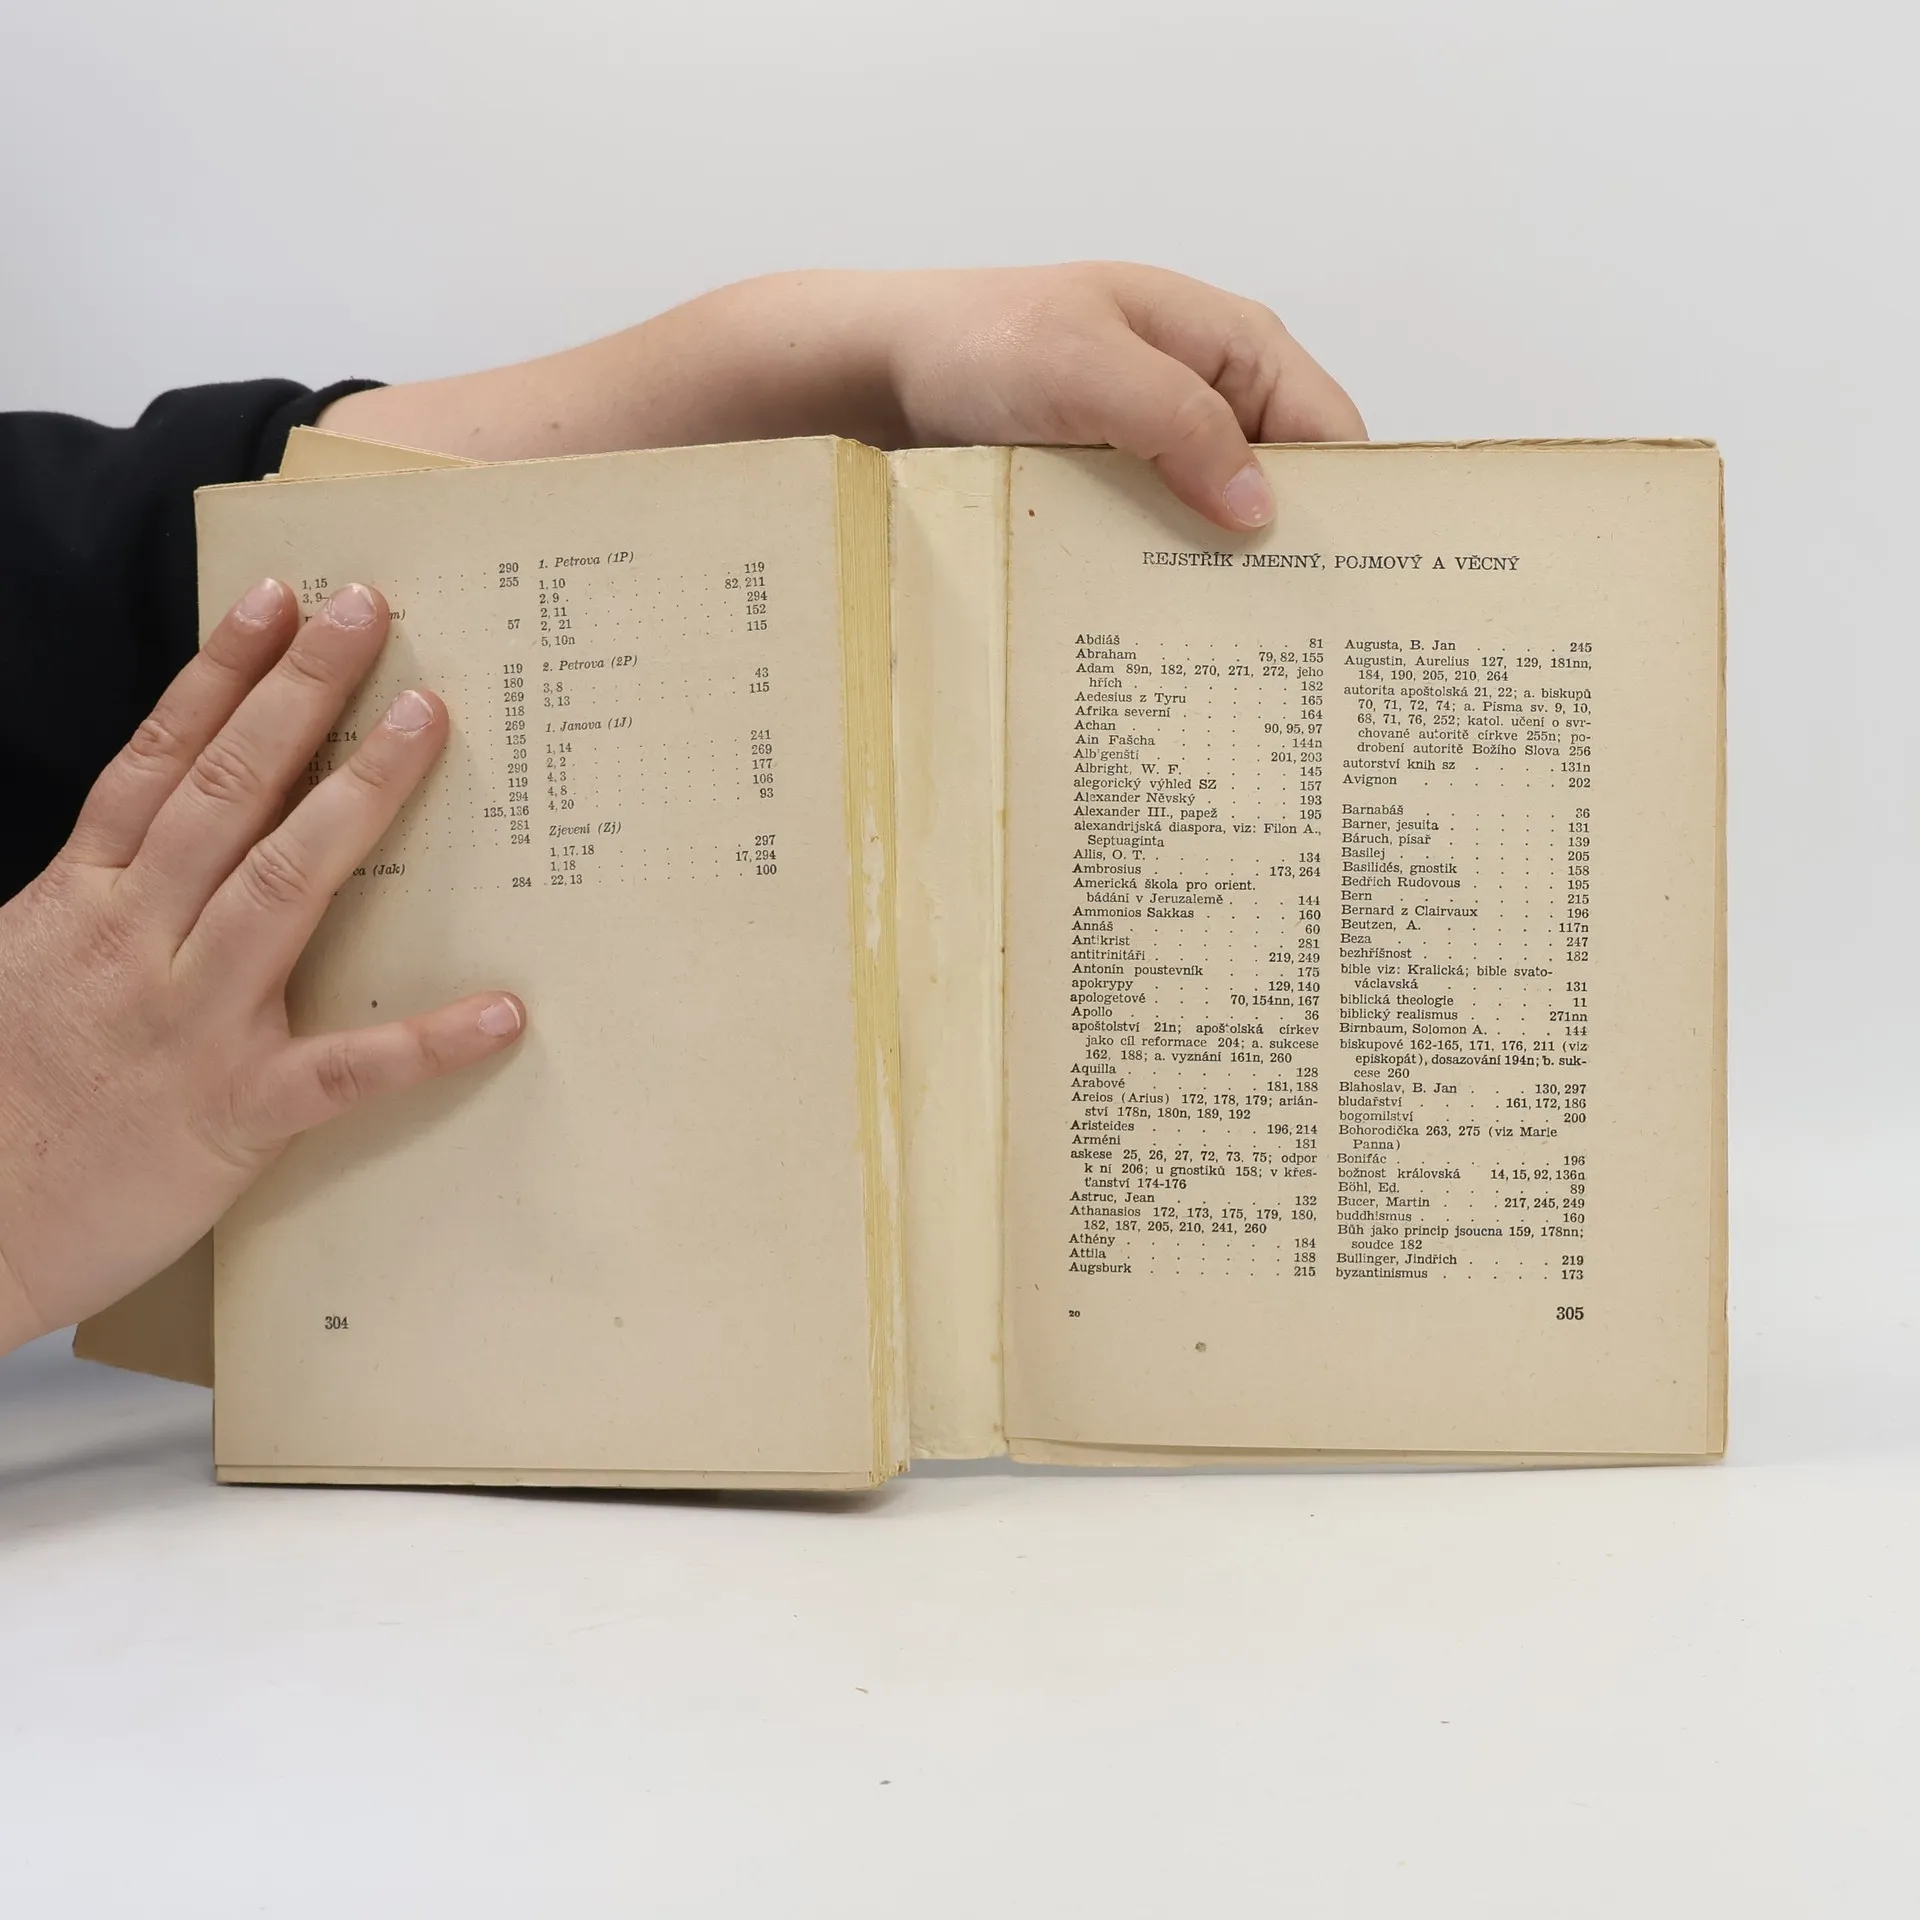 1, 15 . . . . 290
3, 9– . . . . 255
m)
. . . . 57
119
180
269
118
12. 14 269
135
30
11, 1 290
119
294
135, 136
281
294
ca (Jak)
. . . . 284
1. Petrova (1P)
1, 10 . . . . . . 119
2, 9 . . . . . . 82, 211
2, 11 . . . . . . 294
2, 21 . . . . . . 152
5, 10n . . . . . . 115
2. Petrova (2P)
3, 8 . . . . . . 43
3, 13 . . . . . . 115
1. Janova (1J)
1, 14 . . . . . . 241
2, 2 . . . . . . 269
4, 3 . . . . . . 177
4, 8 . . . . . . 106
4, 20 . . . . . . 93
Zjevení (Zj)
1, 17. 18 . . . . . 297
1, 18 . . . . . 17, 294
22, 13 . . . . . 100
304
REJSTŘÍK JMENNÝ, POJMOVÝ A VĚCNÝ
Abdiáš . . . . . . . 81
Abraham . . . . 79, 82, 155
Adam 89n, 182, 270, 271, 272, jeho
hřích . . . . . . . 182
Aedesius z Tyru . . . . 165
Afrika severní . . . . . 164
Achan . . . . . 90, 95, 97
Ain Fašcha . . . . . 144n
Albigenští . . . . . 201, 203
Albright, W. F. . . . . 145
alegorický výhled SZ . . . 157
Alexander Něvský . . . . 193
Alexander III., papež . . . 195
alexandrijská diaspora, viz: Filon A.,
Septuaginta
Allis, O. T. . . . . . 134
Ambrosius . . . . . 173, 264
Americká škola pro orient.
bádání v Jeruzalemě . . . 144
Ammonios Sakkas . . . . 160
Annáš . . . . . . . 60
Antikrist . . . . . . 281
antitrinitáři . . . . . 219, 249
Antonín poustevník . . . 175
apokrypy . . . . . 129, 140
apologetové . . . 70, 154nn, 167
Apollo . . . . . . . 36
apoštolství 21n; apoštolská církev
jako cíl reformace 204; a. sukcese
162, 188; a. vyznání 161n, 260
Aquilla . . . . . . . 128
Arabové . . . . . 181, 188
Areios (Arius) 172, 178, 179; arián-
ství 178n, 180n, 189, 192
Aristeides . . . . . 196, 214
Arméni . . . . . . 181
askese 25, 26, 27, 72, 73, 75; odpor
k ní 206; u gnostiků 158; v křes-
ťanství 174-176
Astruc, Jean . . . . . 132
Athanasios 172, 173, 175, 179, 180,
182, 187, 205, 210, 241, 260
Athény . . . . . . . 184
Attila . . . . . . . 188
Augsburk . . . . . . 215
20
Augusta, B. Jan . . . . 245
Augustin, Aurelius 127, 129, 181nn,
184, 190, 205, 210, 264
autorita apoštolská 21, 22; a. biskupů
70, 71, 72, 74; a. Písma sv. 9, 10,
68, 71, 76, 252; katol. učení o svr-
chované autoritě církve 255n; po-
drobení autoritě Božího Slova 256
autorství knih sz . . . . 131n
Avignon . . . . . . 202
Barnabáš . . . . . . 36
Barner, jesuita . . . . . 131
Báruch, písař . . . . . 139
Basilej . . . . . . . 205
Basilidés, gnostik . . . . 158
Bedřich Rudovous . . . . 195
Bern . . . . . . . 215
Bernard z Clairvaux . . . 196
Beutzen, A. . . . . . 117n
Beza . . . . . . . 247
bezhříšnost . . . . . . 182
bible viz: Kralická; bible svato-
václavská . . . . . 131
biblická theologie . . . . 11
biblický realismus . . . 271nn
Birnbaum, Solomon A. . . . 144
biskupové 162-165, 171, 176, 211 (viz
episkopát), dosazování 194n; b. suk-
cese 260
Blahoslav, B. Jan . . . 130, 297
bludařství . . . . 161, 172, 186
bogomilství . . . . . 200
Bohorodička 263, 275 (viz Marie
Panna)
Bonifác . . . . . . . 196
božnost královská 14, 15, 92, 136n
Böhl, Ed. . . . . . . 89
Bucer, Martin . . . 217, 245, 249
buddhismus . . . . . . 160
Bůh jako princip jsoucna 159, 178nn;
soudce 182
Bullinger, Jindřich . . . . 219
byzantinismus . . . . . 173
305